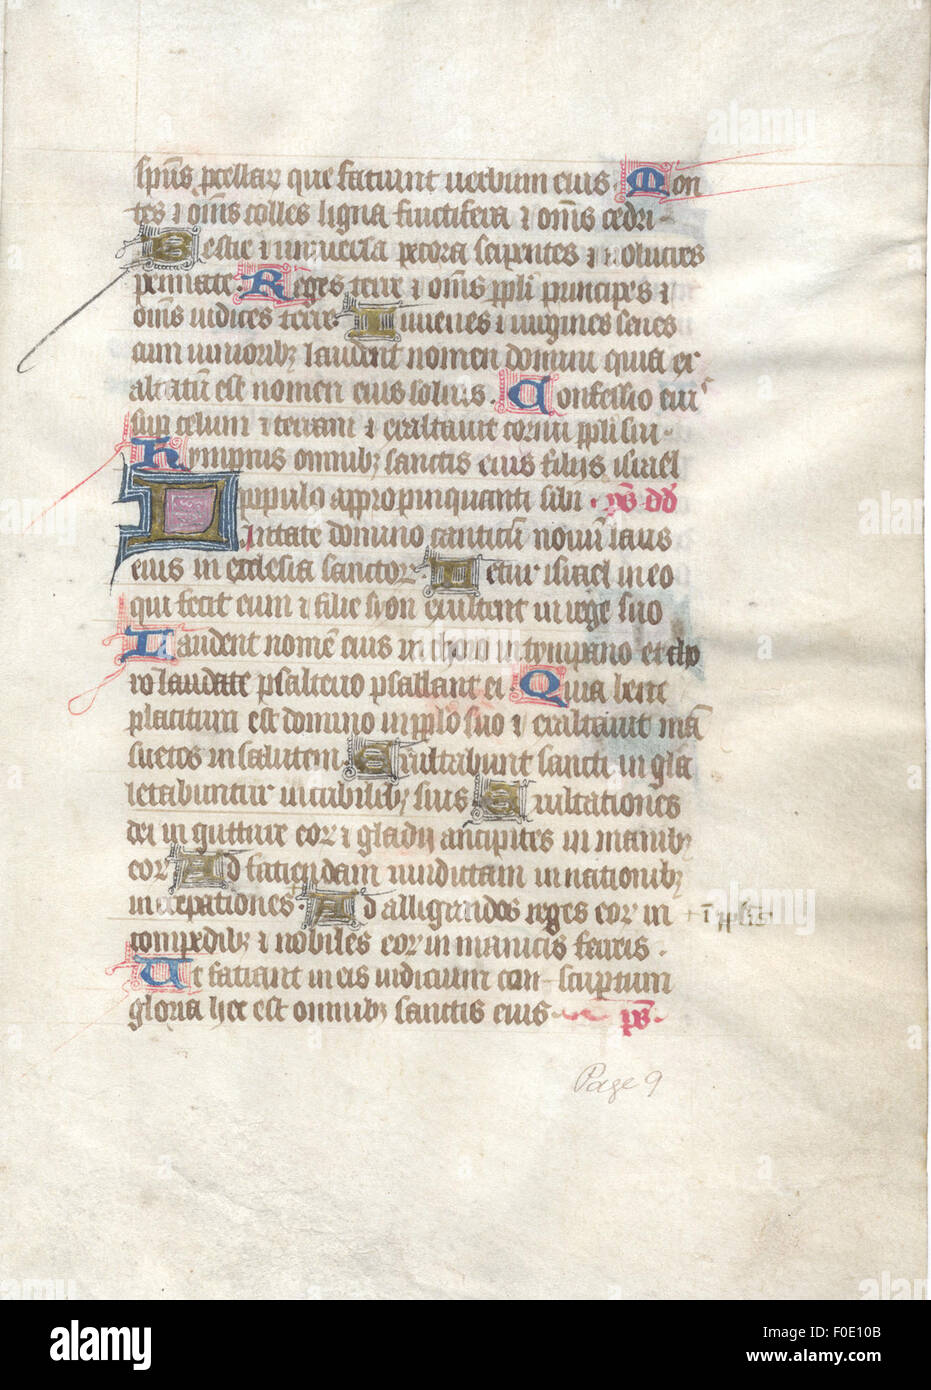 spūs ꝓcellaꝝ que faciunt verbum eius. Mon
tes ⁊ om̄s colles ligna fructifera ⁊ om̄s cedri
Bestie ⁊ universa pecora serpentes ⁊ volucres
pennate. Reges terre ⁊ om̄s ppli principes ⁊
om̄s iudices terre. Iuvenes ⁊ virgines senes
cum iunioribꝫ laudent nomen domini quia ex
altatū est nomen eius solius. Confessio eiꝰ
suꝑ celum ⁊ terram ⁊ exaltavit cornu ppli sui
Hympnus omnibꝫ sanctis eius filiis israel
populo appropinquanti sibi. p̄s dd̄
Cantate domino canticū novū laus
eius in ecclesia sanctoꝝ. Letetur israel in eo
qui fecit eum ⁊ filie syon exultent in rege suo
Laudent nomē eius in choro in tympano et choro
ro laudate psalterio psallant ei Quia bene
placitum est domino in pplo suo ⁊ exaltavit mā
suetos in salutem Exultabunt sancti in gla
letabuntur in cubilibꝫ suis Exultationes
dei in gutture eoꝝ ⁊ gladii ancipites in manibꝫ
eoꝝ Ad faciendam vindictam in nationibꝫ
increpationes. Ad alligandos reges eoꝝ in
compedibꝫ ⁊ nobiles eoꝝ in manicis ferreis.
Ut faciant in eis iudicium con-scriptum
gloria hec est omnibꝫ sanctis eius p̄s.
+ ī pp̄lis
Page 9
alamy
Image ID: F0E10B
www.alamy.com